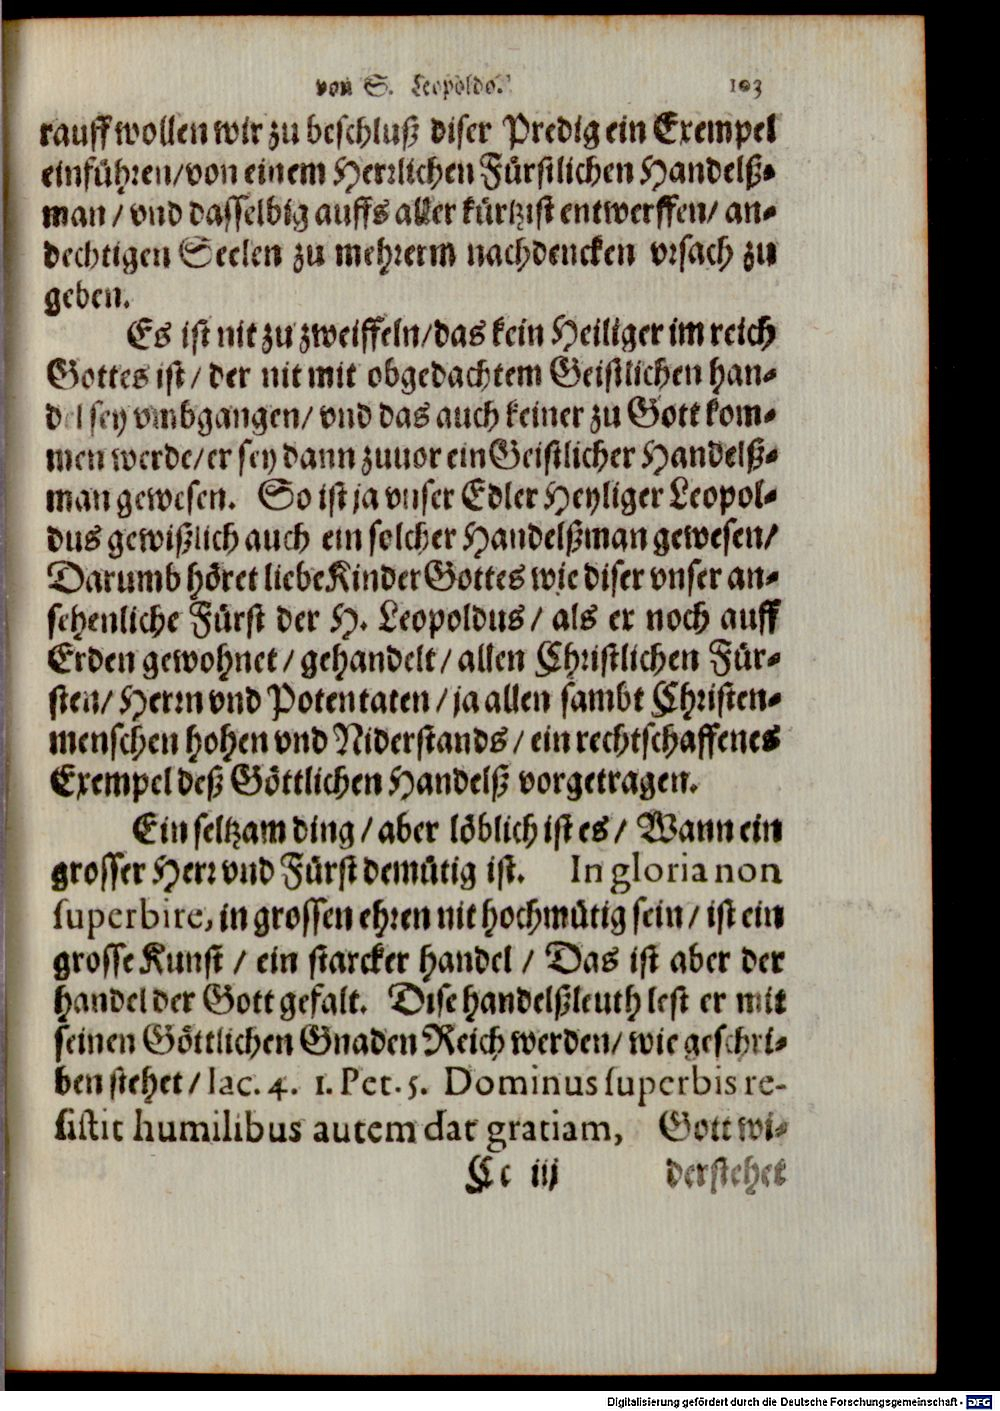 von S. Leopoldo. 103
rauff wollen wir zu beschluß diser Predig ein Exempel
einführen/von einem Herrlichen Fürstlichen Handelß-
man / vnd dasselbig auffs aller kürtzist entwerffen/ an-
dechtigen Seelen zu mehrerm nachdencken vrsach zu
geben.
Es ist nit zu zweiffeln/das kein Heiliger im reich
Gottes ist / der nit mit obgedachtem Geistlichen han-
del sey vmbgangen/ vnd das auch keiner zu Gott kom-
men werde/er sey dann zuuor ein Geistlicher Handelß-
man gewesen. So ist ja vnser Edler Heyliger Leopol-
dus gewißlich auch ein solcher Handelßman gewesen/
Darumb höret liebe Kinder Gottes wie diser vnser an-
sehenliche Fürst der H. Leopoldus / als er noch auff
Erden gewohnet / gehandelt / allen Christlichen Für-
sten/ Herrn vnd Potentaten / ja allen sambt Christen-
menschen hohen vnd Niderstands / ein rechtschaffenes
Exempel deß Göttlichen Handelß vorgetragen.
Ein seltzam ding / aber löblich ist es / Wann ein
grosser Herr vnd Fürst demütig ist. In gloria non
superbire, in grossen ehren nit hochmütig sein / ist ein
grosse Kunst / ein starcker handel / Das ist aber der
handel der Gott gefalt. Dise handelßleuth lest er mit
seinen Göttlichen Gnaden Reich werden/ wie geschri-
ben stehet / Iac. 4. 1. Pet. 5. Dominus superbis re-
sistit humilibus autem dat gratiam, Gott wi-
Cc iij derstehet
Digitalisierung gefördert durch die Deutsche Forschungsgemeinschaft - DFG